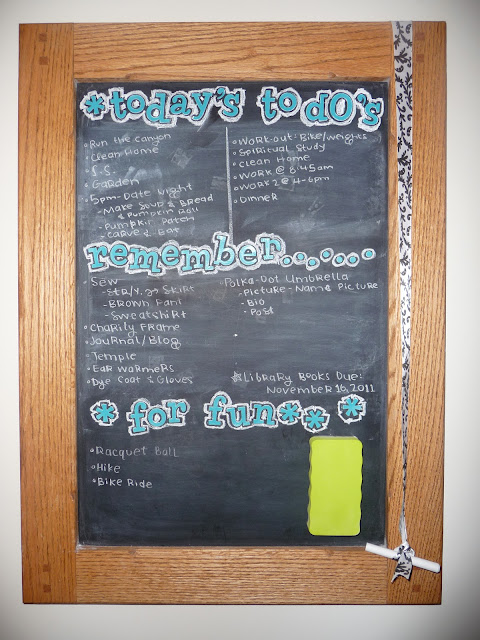 *today's to dO's
• Run the canyon
• Clean Home
• S.S.
• Garden
• 5pm-Date Night
- Make Soup & Bread
& Pumpkin Roll
- Pumpkin Patch
- Carve & Eat
• Work-out: Bike/weights
• Spiritual Study
• Clean Home
• Work @ 6:45am
• Work 2 @ 4-6pm
• Dinner
remember.........
• Sew
- Skirt
- Brown Pant
- Sweatshirt
• Charity Frame
• Journal/Blog
• Temple
• Ear Warmers
• Dye Coat & Gloves
• Polka-Dot Umbrella
- Picture - Name Picture
- Bio
- Post
*Library Books Due:
November 16, 2011
* for fun** *
• Racquet Ball
• Hike
• Bike Ride